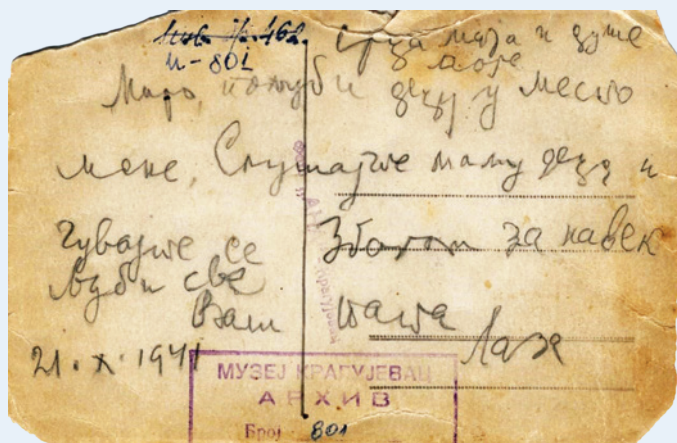 Инв. бр. 162
И-801
Срца моја и душе
моје
Маро, пољуби децу у место
мене, Слушајте маму децо и
чувајте се Збогом за навек
Љуби све
Ваш тата
Лаза
21. X. 1941
МУЗЕЈ КРАГУЈЕВАЦ
АРХИВ
Број 801